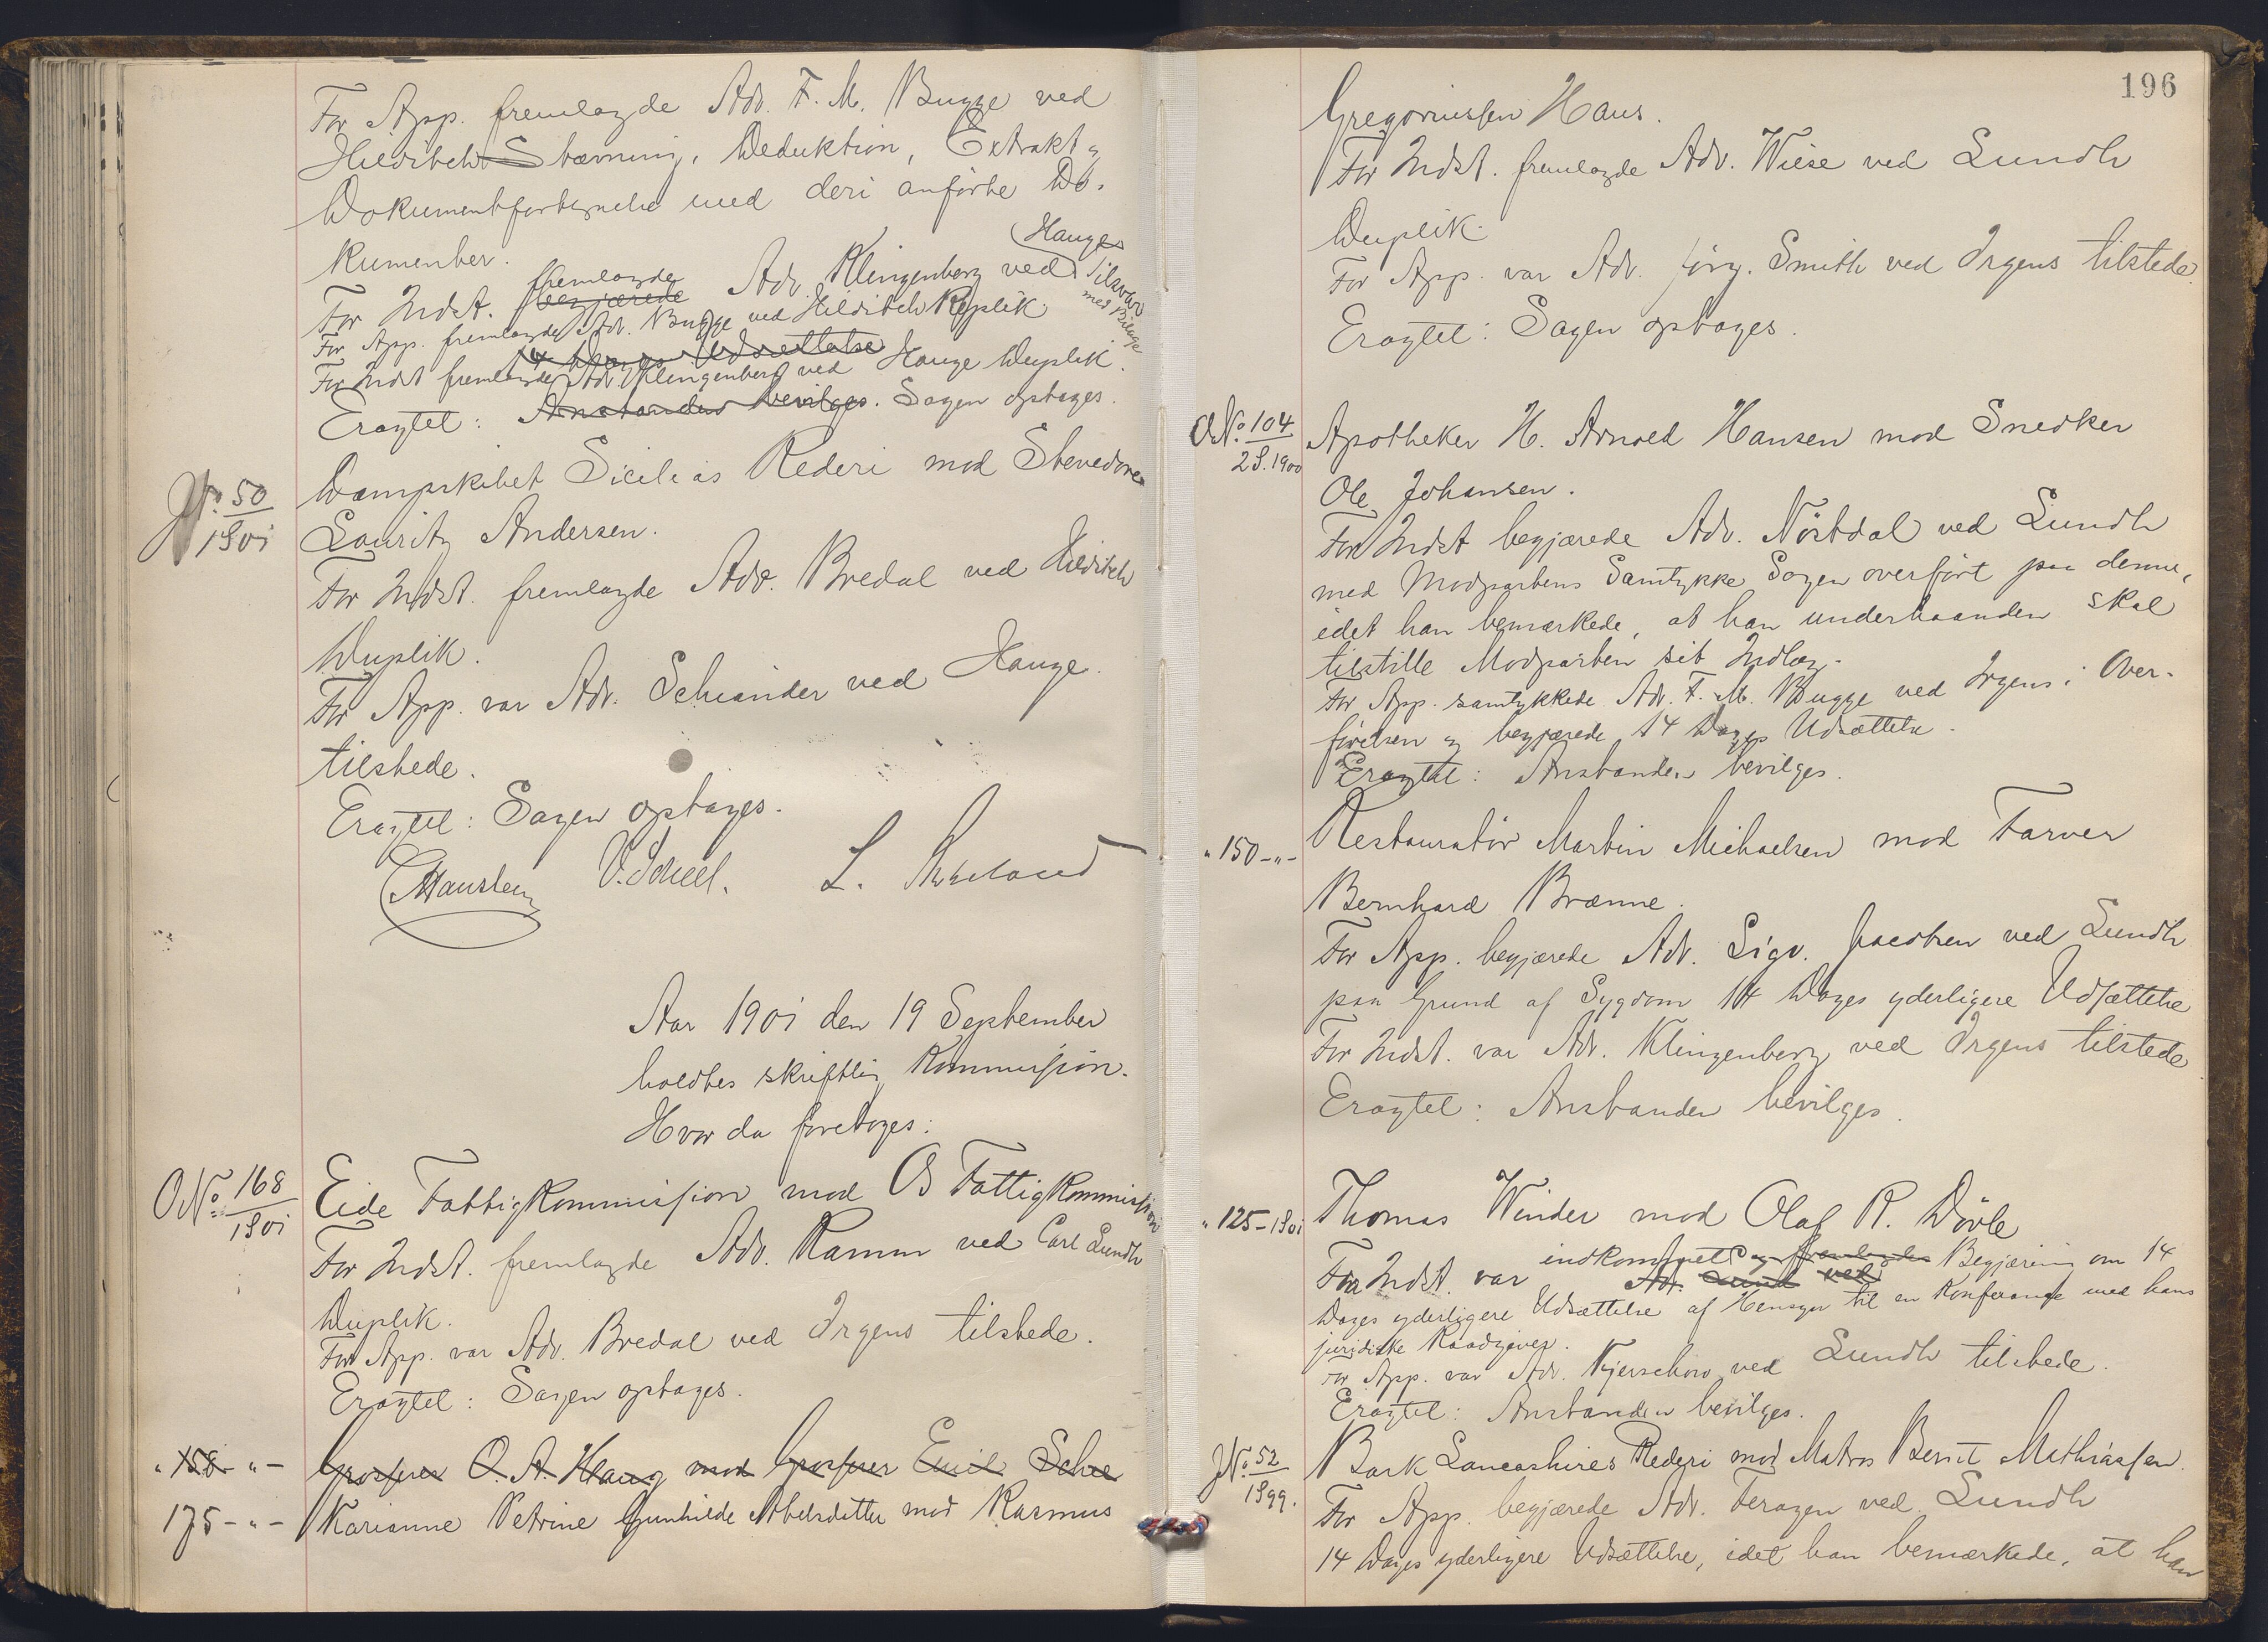 For App. fremlagde Adv. F. M. Bugge ved
Hilditch Stævning, Deduktion, Extrakt og
Dokumentfortegnelse med deri anførte Do-
kumenter.
For Indst. begjærede fremlagde Adv. Klingenberg ved Hauge Tilsvar med Bilage
For App. fremlagde Adv. Bugge ved Hilditch Replik
14 Dages Udsættelse
For Indst fremlagde Adv. Klingenberg ved Hauge Duplik.
Eragtet: Anstanden bevilges. Sagen optages.
J№ 50/1901 Dampskibet Sicilias Rederi mod Stevedore
Lauritz Andersen.
For Indst. fremlagde Adv. Bredal ved Hilditch
Duplik.
For App. var Adv. Schiander ved Hauge
tilstede.
Eragtet: Sagen optages.
V. Scheel. L.
Aar 1901 den 19 September
holdtes skriftlig Kommission.
Hvor da foretoges:
O№ 168/1901 Eide Fattigkommission mod Os Fattigkommission
For Indst. fremlagde Adv. Ramm ved Carl Lundh
Duplik.
For App. var Adv. Bredal ved Irgens tilstede.
Eragtet: Sagen optages.
" 158 - " - Grosserer O. A. Haug mod Grosserer Emil Schee
175 - " - Karianne Petrine Gunhilde Abelsdatter mod Rasmus
196
Gregoriussen Haus.
For Indst. fremlagde Adv. Wiese ved Lundh
Duplik.
For App. var Adv. Jörg. Smith ved Irgens tilstede.
Eragtet: Sagen optages.
O№ 104/2S.1900 Apotheker H. Arnold Hansen mod Snedker
Ole Johansen.
For Indst begjærede Adv. Nöstdal ved Lundh
med Modpartens Samtykke Sagen overført paa denne,
idet han bemærkede, at han underhaanden skal
tilstille Modparten sit Indlæg.
For App. samtykkede Adv. F. M. Bugge ved Irgens i Over-
førelsen og begjærede 14 Dages Udsættelse.
Eragtet: Anstanden bevilges.
" 150 - " - Restauratör Martin Michaelsen mod Farver
Bernhard Brænne.
For App. begjærede Adv. Sigv. Jacobsen ved Lundh
paa Grund af Sygdom 14 Dages yderligere Udsættelse
For Indst. var Adv. Klingenberg ved Irgens tilstede
Eragtet: Anstanden bevilges.
" 125 - 1901 Thomas Winder mod Olaf R. Dövle
For Indst. var indkommet og fremlagdes Begjæring om 14
Adv. Lund ved
Dages yderligere Udsættelse af Hensyn til en Konferance med hans
juridiske Raadgiver.
For App. var Adv. Kjerschow ved Lundh tilstede.
Eragtet: Anstanden bevilges.
J№ 52/1899. Bark Lancashires Rederi mod Matros Bernt Mathiassen.
For App. begjærede Adv. Feragen ved Lundh
14 Dages yderligere Udsættelse, idet han bemærkede, at han